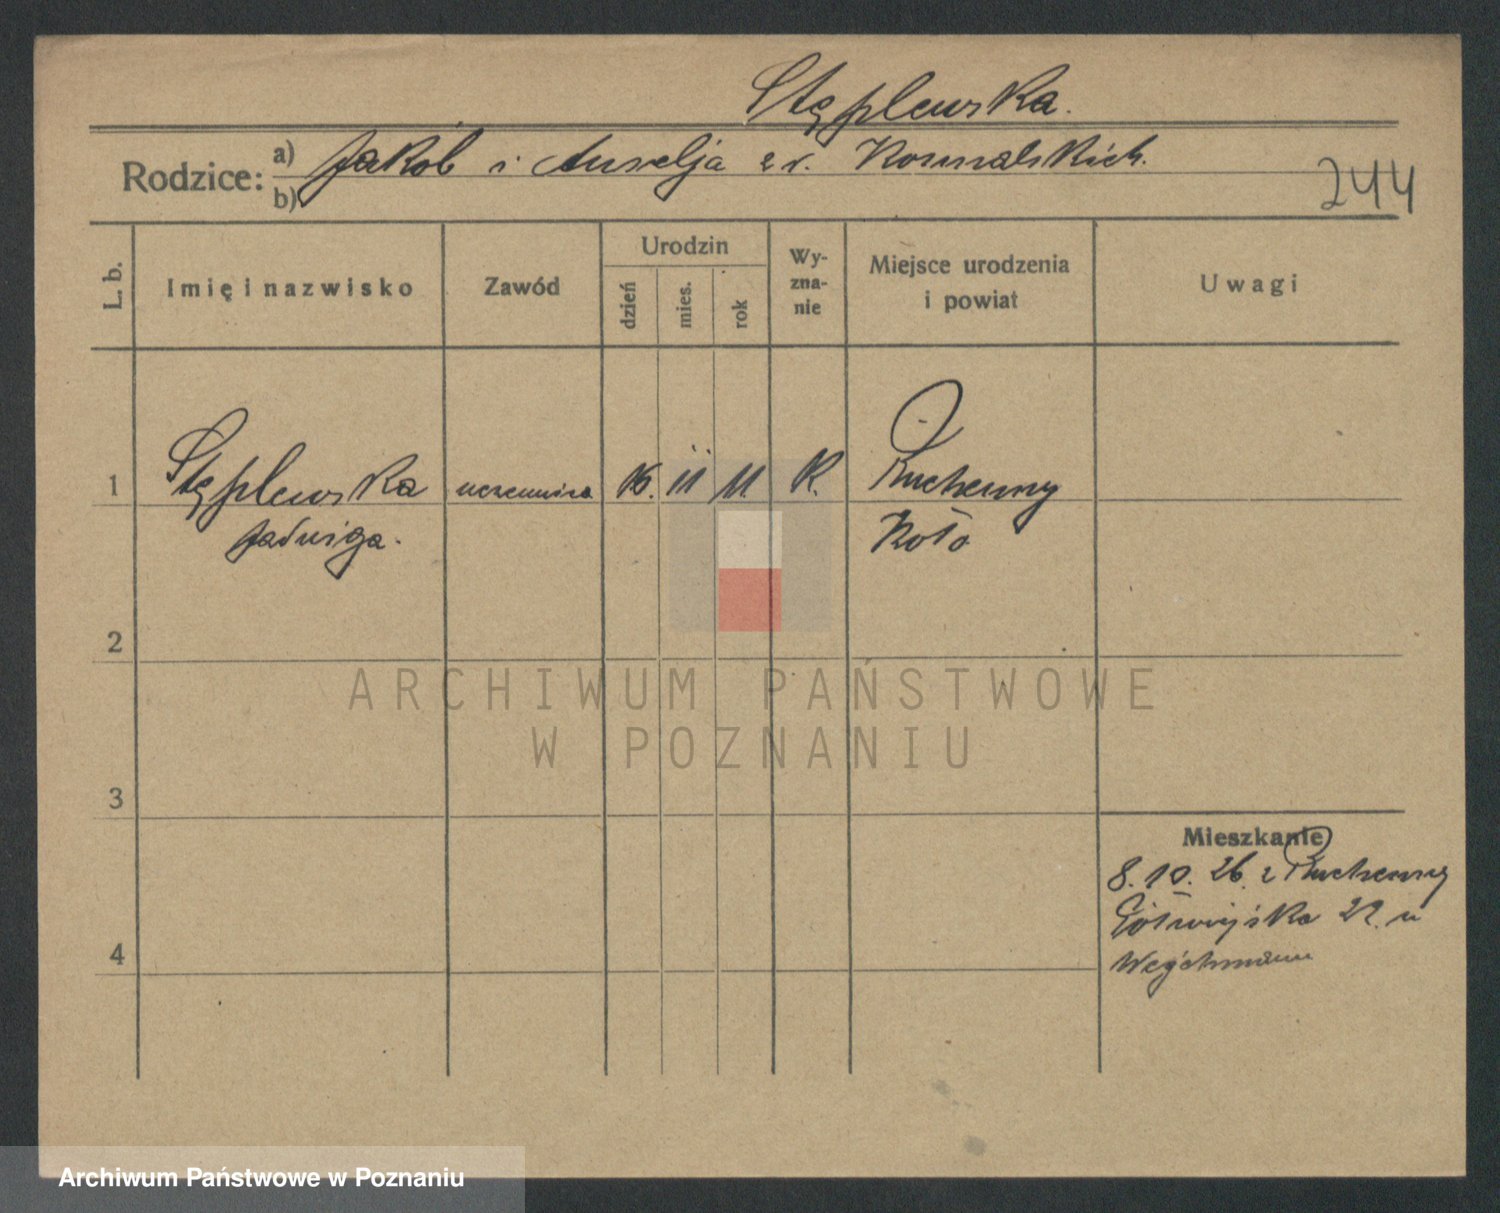 Stęplewska.
Rodzice: a) Jakób i Aurelja z d. Kowalskich.
b)
244
L. b. Imię i nazwisko Zawód Urodzin dzień mies. rok Wy-zna-nie Miejsce urodzenia i powiat Uwagi
1 Stęplewska uczennica 16. II 11. R. Ruchenny
Jadwiga. Koło
2
ARCHIWUM PAŃSTWOWE
W POZNANIU
3
Mieszkanie
8. 10. 26. z Ruchenny
22. u
4
Archiwum Państwowe w Poznaniu